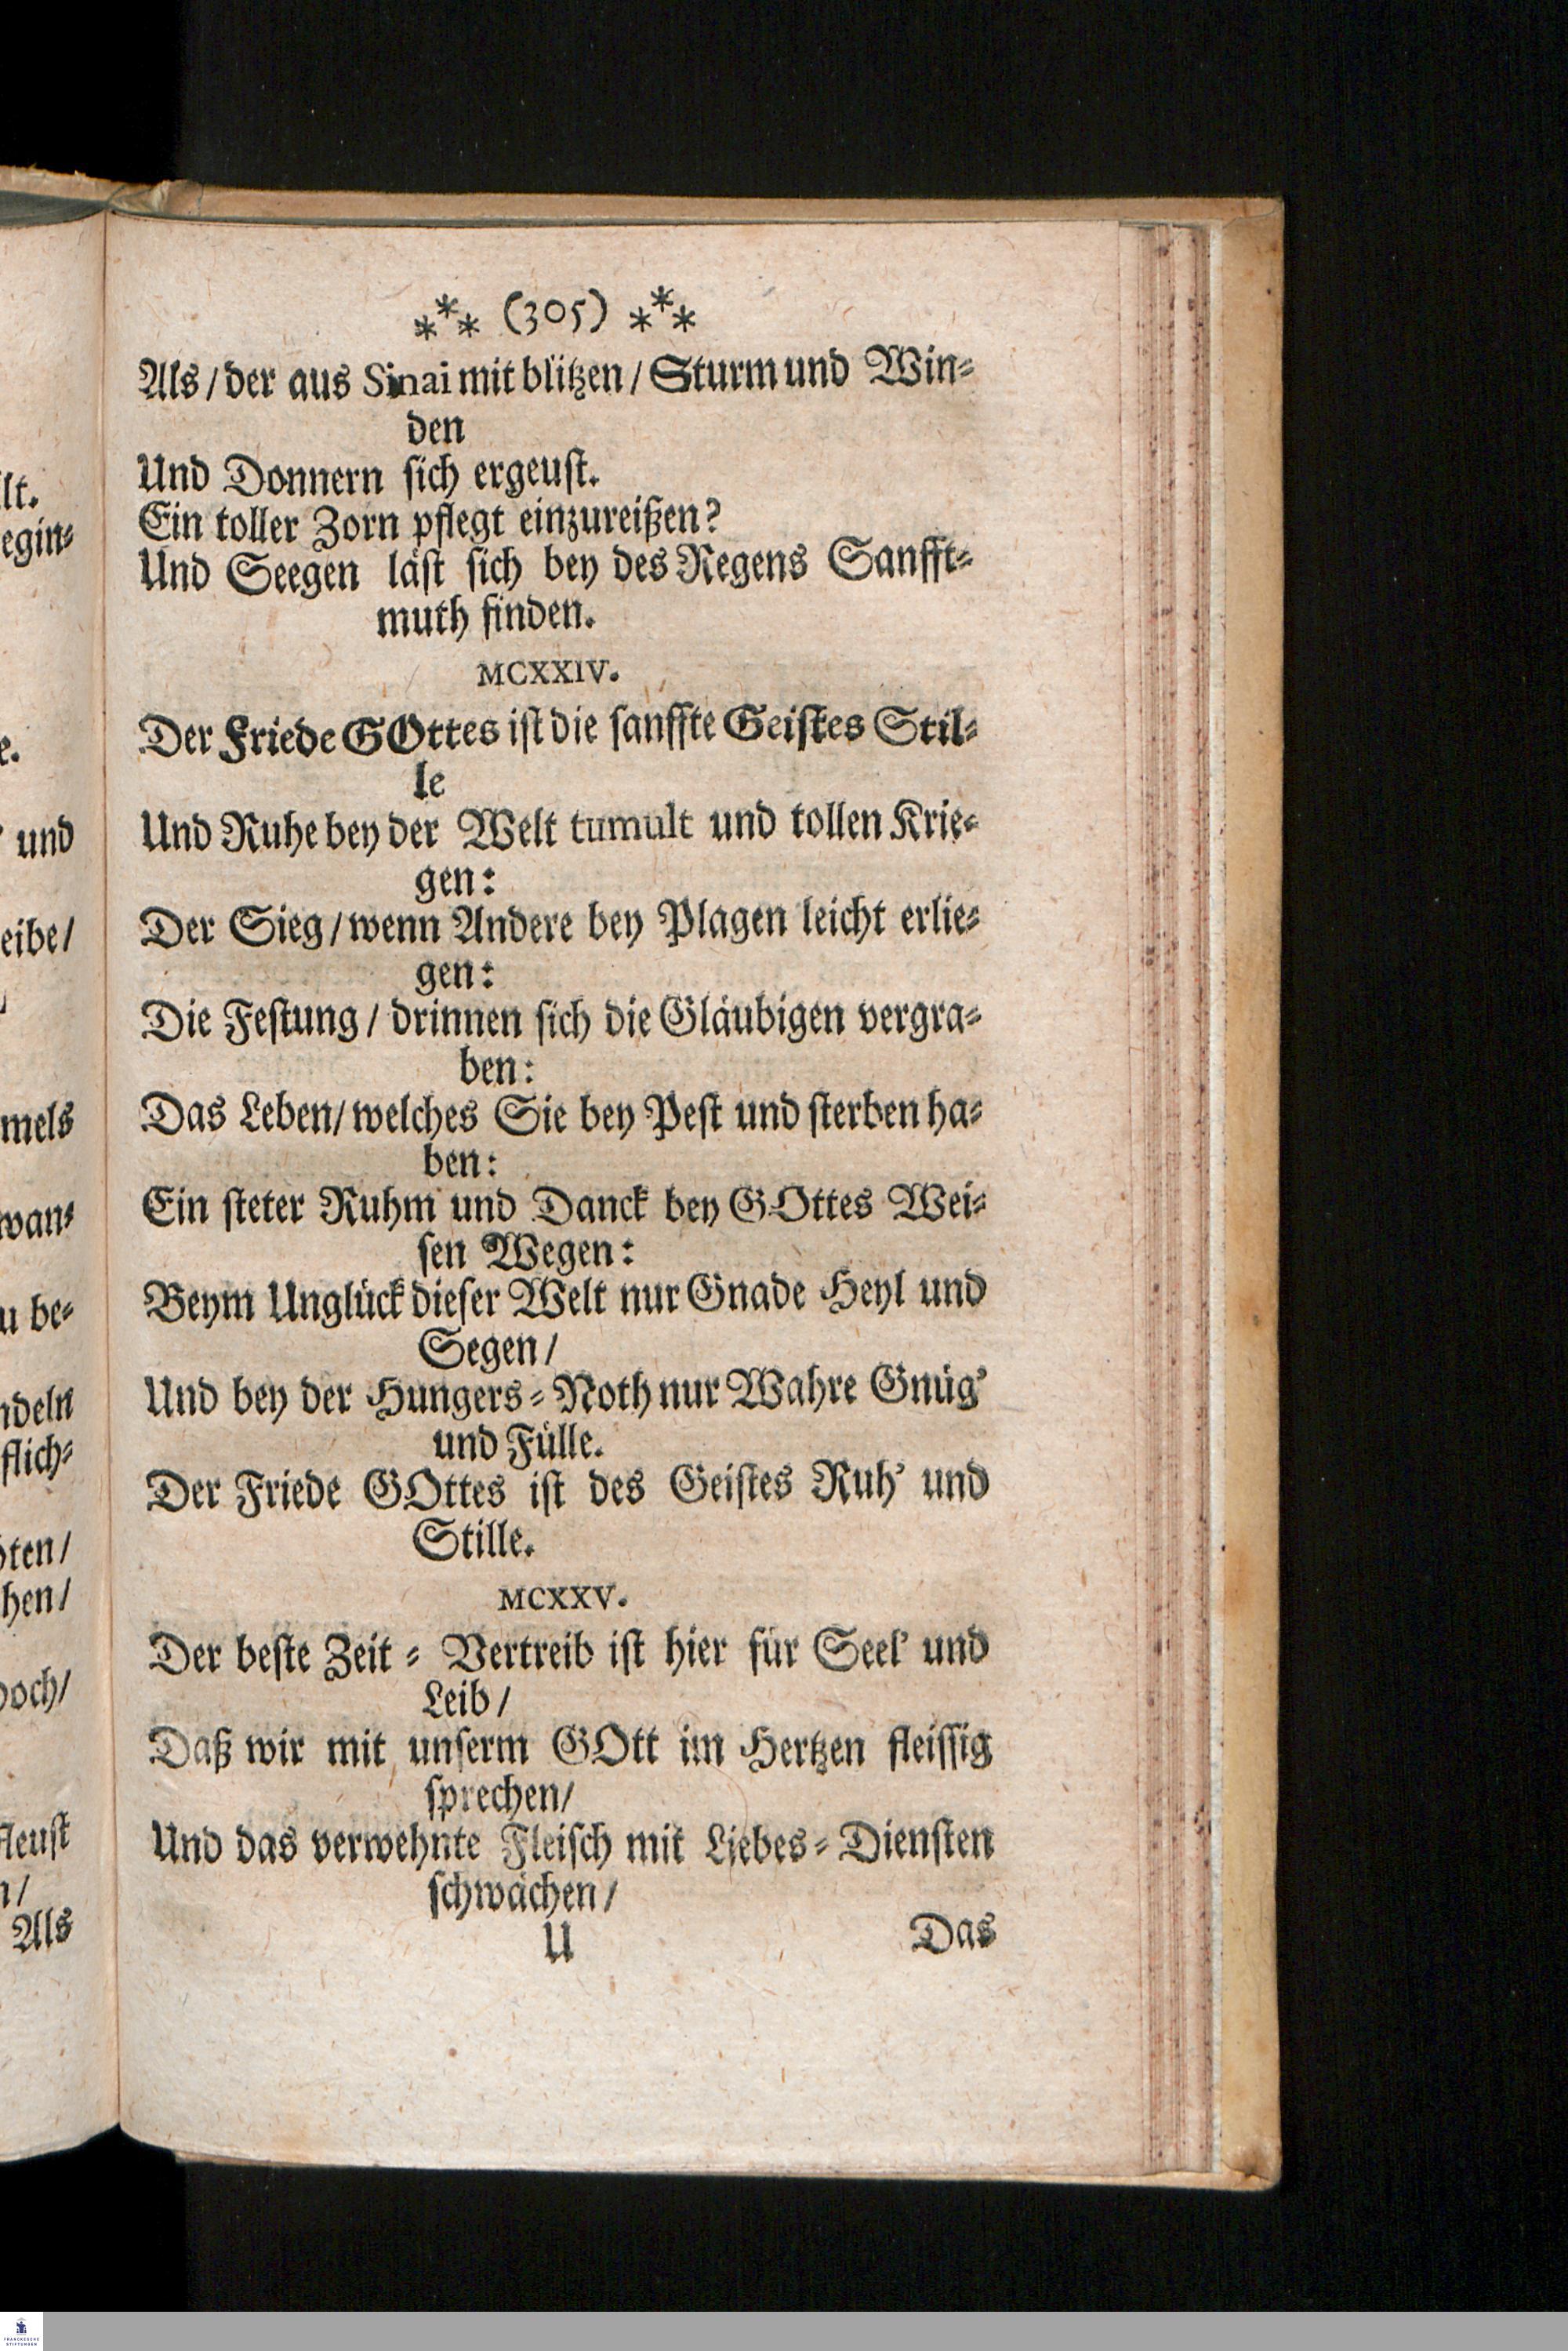 lt.
egin=
e.
' und
eibe/
mels
wan=
u be=
ndeln
flich=
öten/
hen/
och/
fleust
n/
Als
⁂ (305) ⁂
Als/ der aus Sinai mit blitzen/ Sturm und Win=
den
Und Donnern sich ergeust.
Ein toller Zorn pflegt einzureißen?
Und Seegen läst sich bey des Regens Sanfft=
muth finden.
MCXXIV.
Der Friede GOttes ist die sanffte Geistes Stil=
le
Und Ruhe bey der Welt tumult und tollen Krie=
gen:
Der Sieg/ wenn Andere bey Plagen leicht erlie=
gen:
Die Festung/ drinnen sich die Gläubigen vergra=
ben:
Das Leben/ welches Sie bey Pest und sterben ha=
ben:
Ein steter Ruhm und Danck bey GOttes Wei=
sen Wegen:
Beym Unglück dieser Welt nur Gnade Heyl und
Segen/
Und bey der Hungers=Noth nur Wahre Gnüg'
und Fülle.
Der Friede GOttes ist des Geistes Ruh' und
Stille.
MCXXV.
Der beste Zeit=Vertreib ist hier für Seel' und
Leib/
Daß wir mit unserm GOtt im Hertzen fleissig
sprechen/
Und das verwehnte Fleisch mit Liebes=Diensten
schwächen/
U Das
FRANCKESCHE
STIFTUNGEN